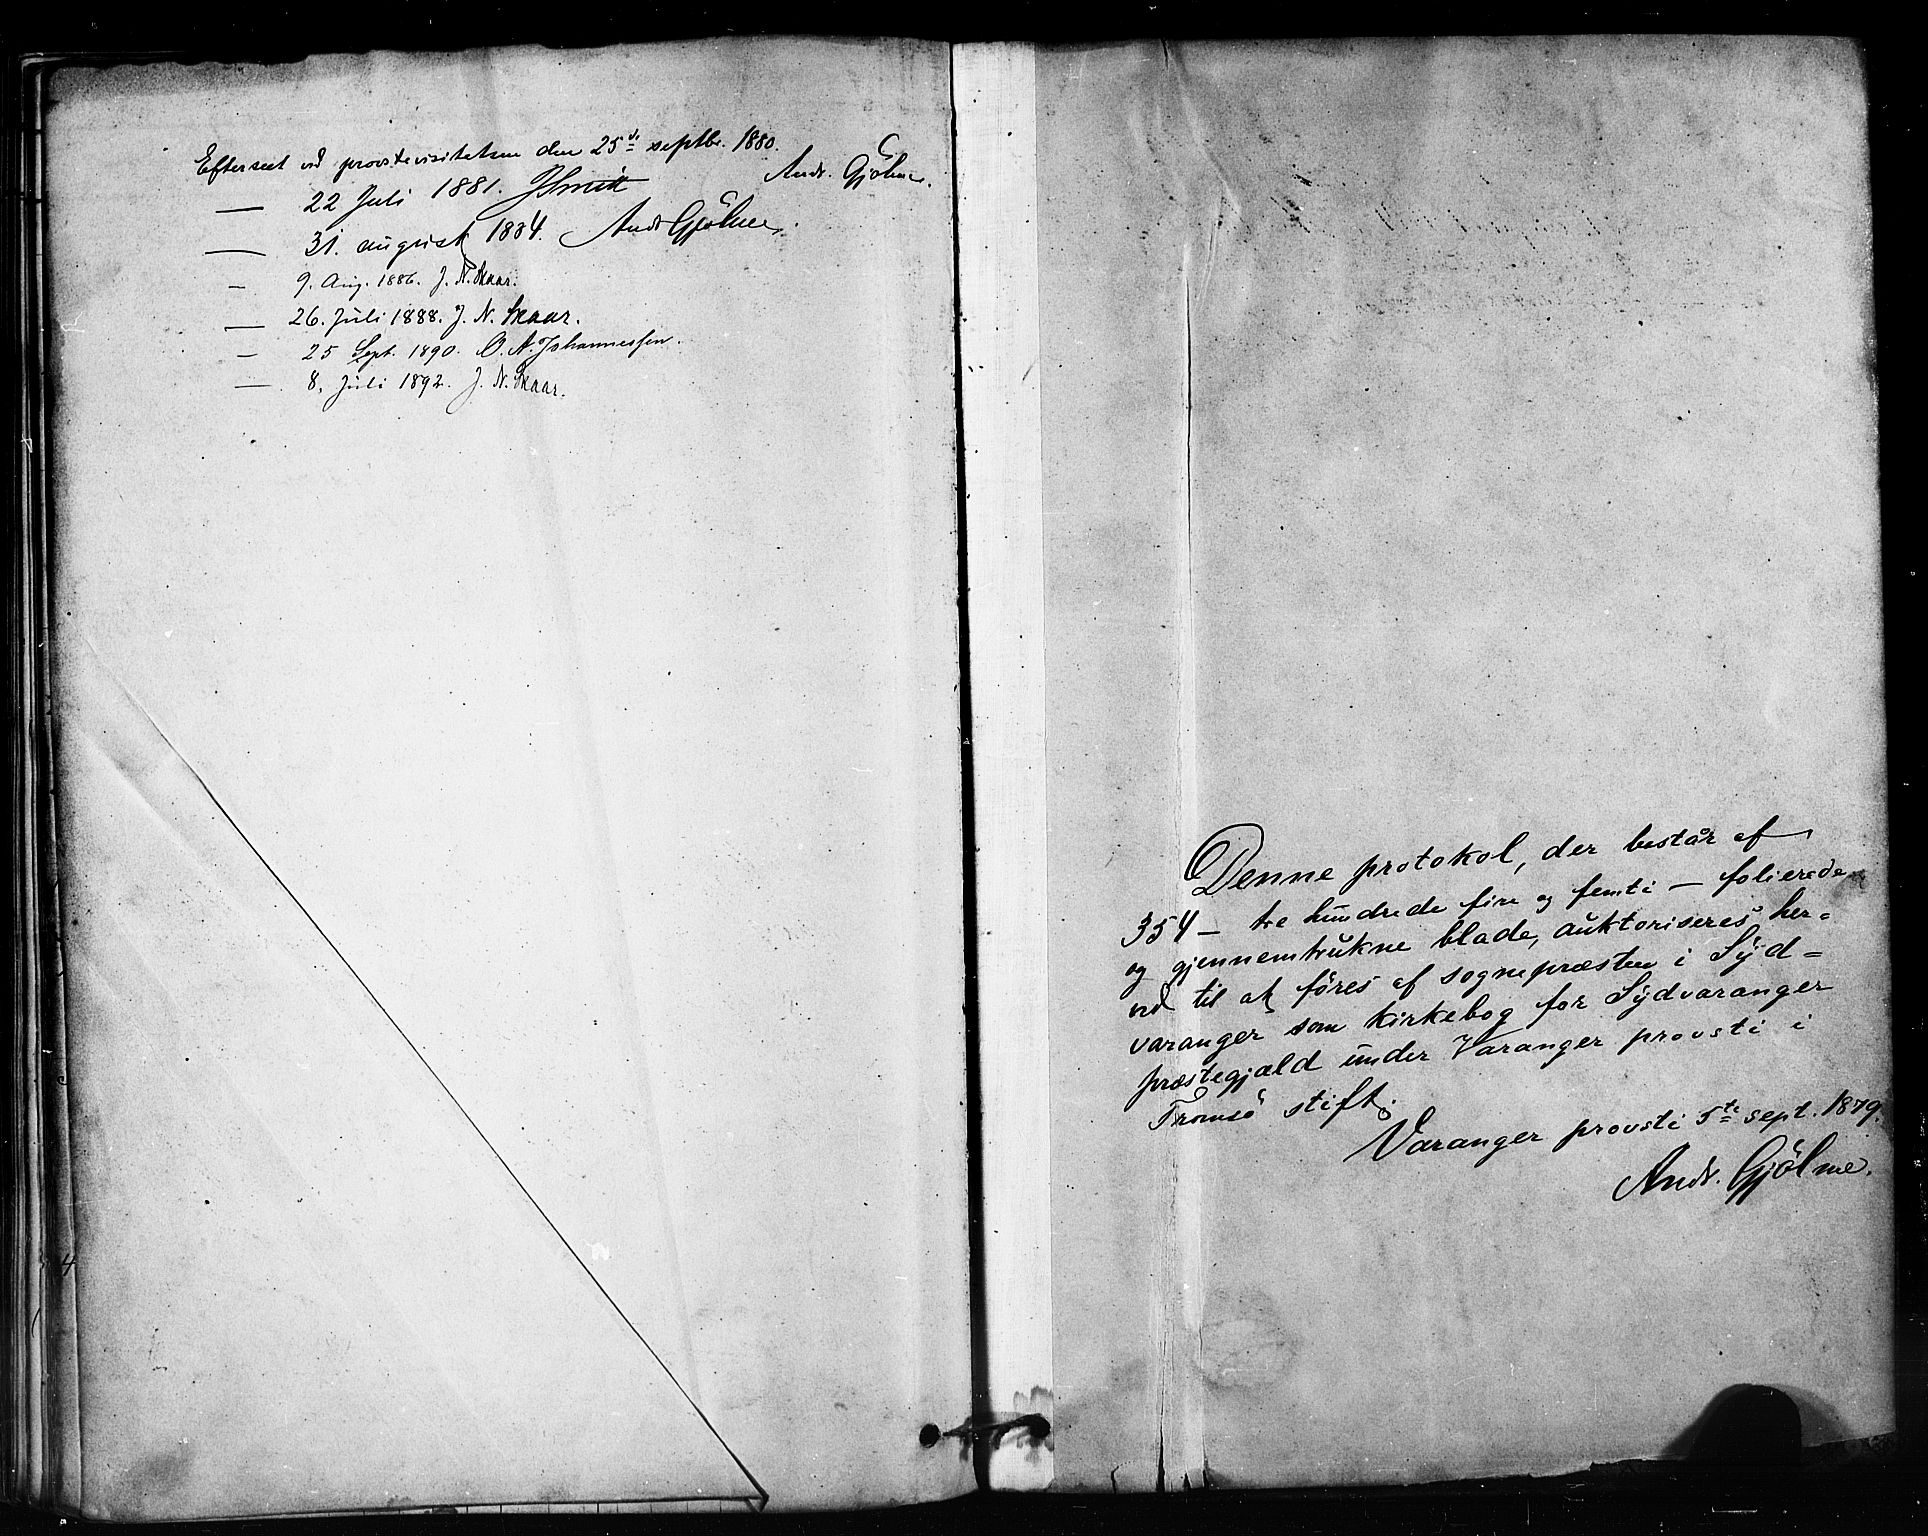 Efterseet ved provstevisitatsen den 25de septbr. 1880.
Andr. Gjölme.
— 22 Juli 1881. JSmitt
— 31. august 1884. Andr Gjölme.
— 9. Aug. 1886. J. N. Skaar.
— 26. Juli 1888. J. N. Skaar.
— 25 Sept. 1890. O. A. Johannessen.
— 8. Juli 1892. J. N. Skaar.
4
Denne protokol, der består af
354 — tre hundrede fire og femti — folierede
og gjennemtrukne blade, auktoriseres her=
ved til at föres af sognepræsten i Syd=
varanger som kirkebog for Sydvaranger
præstegjæld under Varanger provsti i
Tromsö stift.
Varanger provsti 5te sept. 1879.
Andr. Gjölme.